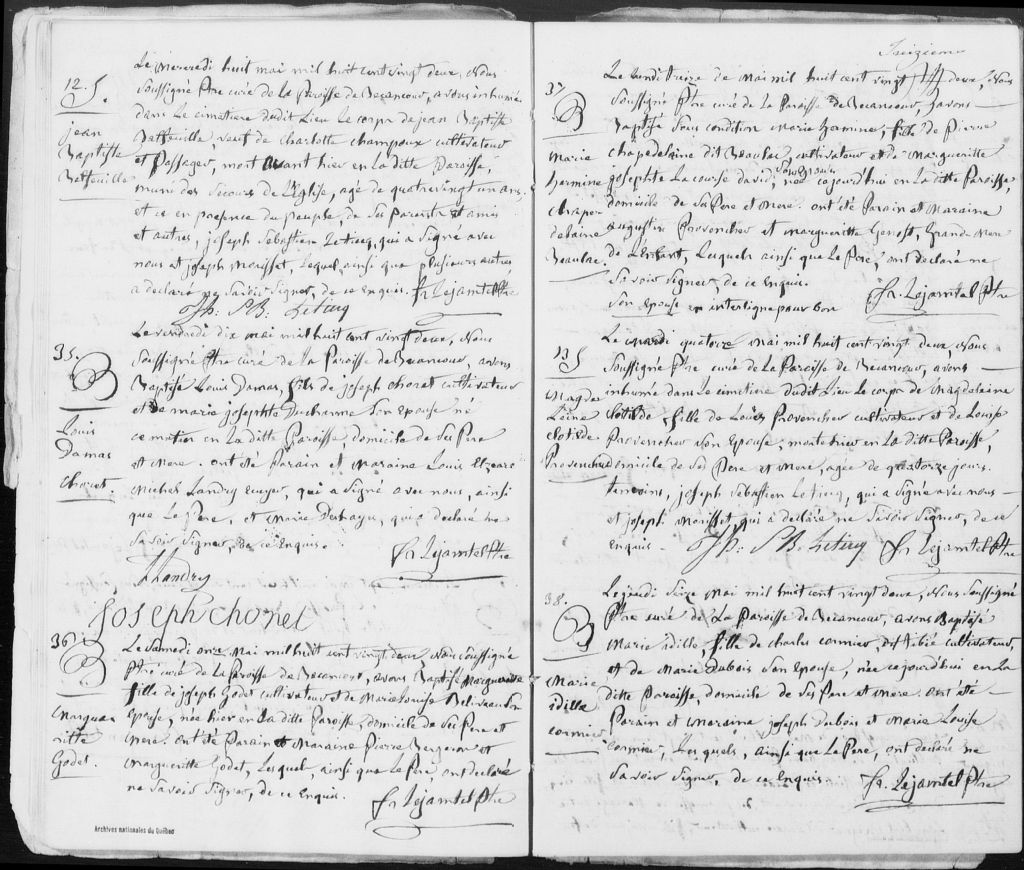 12. S.
jean
Baptiste
Batteuille
Le mercredi huit mai mil huit cent vingt deux, Nous
Soussigné Ptre curé de la Paroisse de Becancour, avons inhumé
dans Le cimetiere dudit Lieu Le corps de jean Baptiste
Batteuille, veuf de Charlotte champoux cultivateur
et Passager, mort avant hier en La ditte Paroisse,
muni des Secours de L'Eglise, agé de quatrevingt un ans,
et ce en presence du peuple de Ses Parents et amis
et autres, joseph Sebastien Leticq, qui a Signé avec
nous et joseph Morisset, Lequel, ainsi que plusieurs autres,
a declaré ne Savoir Signer, de ce Enquis. Fr Lejamtel Ptre
Jh: S B: Leticq
35.
B
Louis
Damas
choret.
Le vendredi dix mai mil huit cent vingt deux, Nous
Soussigné Ptre curé de La Paroisse de Becancour, avons
Baptisé Louis Damas, fils de joseph choret cultivateur
et de marie josephte Ducharme Son epouse né
ce matin en La ditte Paroisse domicile de Ses Pere
et Mere. ont été Parain et Maraine Louis
Michel Landry ecuyer, qui a Signé avec nous, ainsi
que Le Pere, et Marie Deshayes, qui a declaré ne
Savoir Signer, de ce Enquis. Fr Lejamtel Ptre
Landry
Joseph choret
36.
B
Margue
ritte
Godet.
Le Samedi onze Mai mil huit cent vingt deux, Nous Soussigné
Ptre curé de La Paroisse de Becancour, avons Baptisé Margueritte
fille de joseph Godet cultivateur et de Marie Louise Beliveau Son
epouse, née hier en La ditte Paroisse, domicile de Ses Pere et
Mere. ont été Parain et Maraine Pierre Bergeron et
Margueritte Godet, Lesquels, ainsi que Le Pere, ont declaré
ne Savoir Signer, de ce Enquis. Fr Lejamtel Ptre
Archives nationales du Québec
Treizieme
37.
B
Marie
hermine
chape
delaine
Beaulac.
Le Lundi treize de Mai mil huit cent vingt deux, Nous
Soussigné Ptre curé de La Paroisse de Becancour, avons
Baptisé Sous condition Marie hermine, fille de Pierre
chapedelaine dit Beaulac, cultivateur et de Margueritte
Son epouse
josephte La course david, née cejourd'hui en La ditte Paroisse,
domicile de Ses Pere et Mere. ont été Parain et Maraine
augustin Provencher et Margueritte Genest, Grande Mere
de L'Enfant, Lesquels ainsi que Le Pere, ont declaré ne
Savoir Signer, de ce Enquis.
Son epouse en interligne pour bon Fr Lejamtel Ptre
13. S
Magde
Laine
clotilde
Provencher
Le mardi quatorze Mai mil huit cent vingt deux, Nous
Soussigné Ptre curé de La Paroisse de Becancour, avons
inhumé dans Le cimetiere dudit Lieu Le corps de Magdelaine
clotilde, fille de Louis Provencher cultivateur et de Louise
Provencher Son epouse, morte hier en La ditte Paroisse,
domicile de Ses Pere et Mere, agée de quatorze jours.
temoins, joseph Sebastien Leticq, qui a Signé avec nous
et joseph Morisset, qui a declaré ne Savoir Signer, de ce
Enquis. Jh: S B. Leticq Fr Lejamtel Ptre
38.
B
Marie
idille
cormier
Le jeudi Seize Mai mil huit cent vingt deux, Nous Soussigné
Ptre curé de La Paroisse de Becancour, avons Baptisé
Marie idille, fille de charles cormier, cultivateur,
et de Marie Dubois Son epouse, née cejourd'hui en La
ditte Paroisse, domicile de Ses Pere et Mere. ont été
Parain et Maraine joseph Dubois et Marie Louise
cormier, Lesquels, ainsi que Le Pere, ont declaré ne
Savoir Signer, de ce Enquis. Fr. Lejamtel Ptre